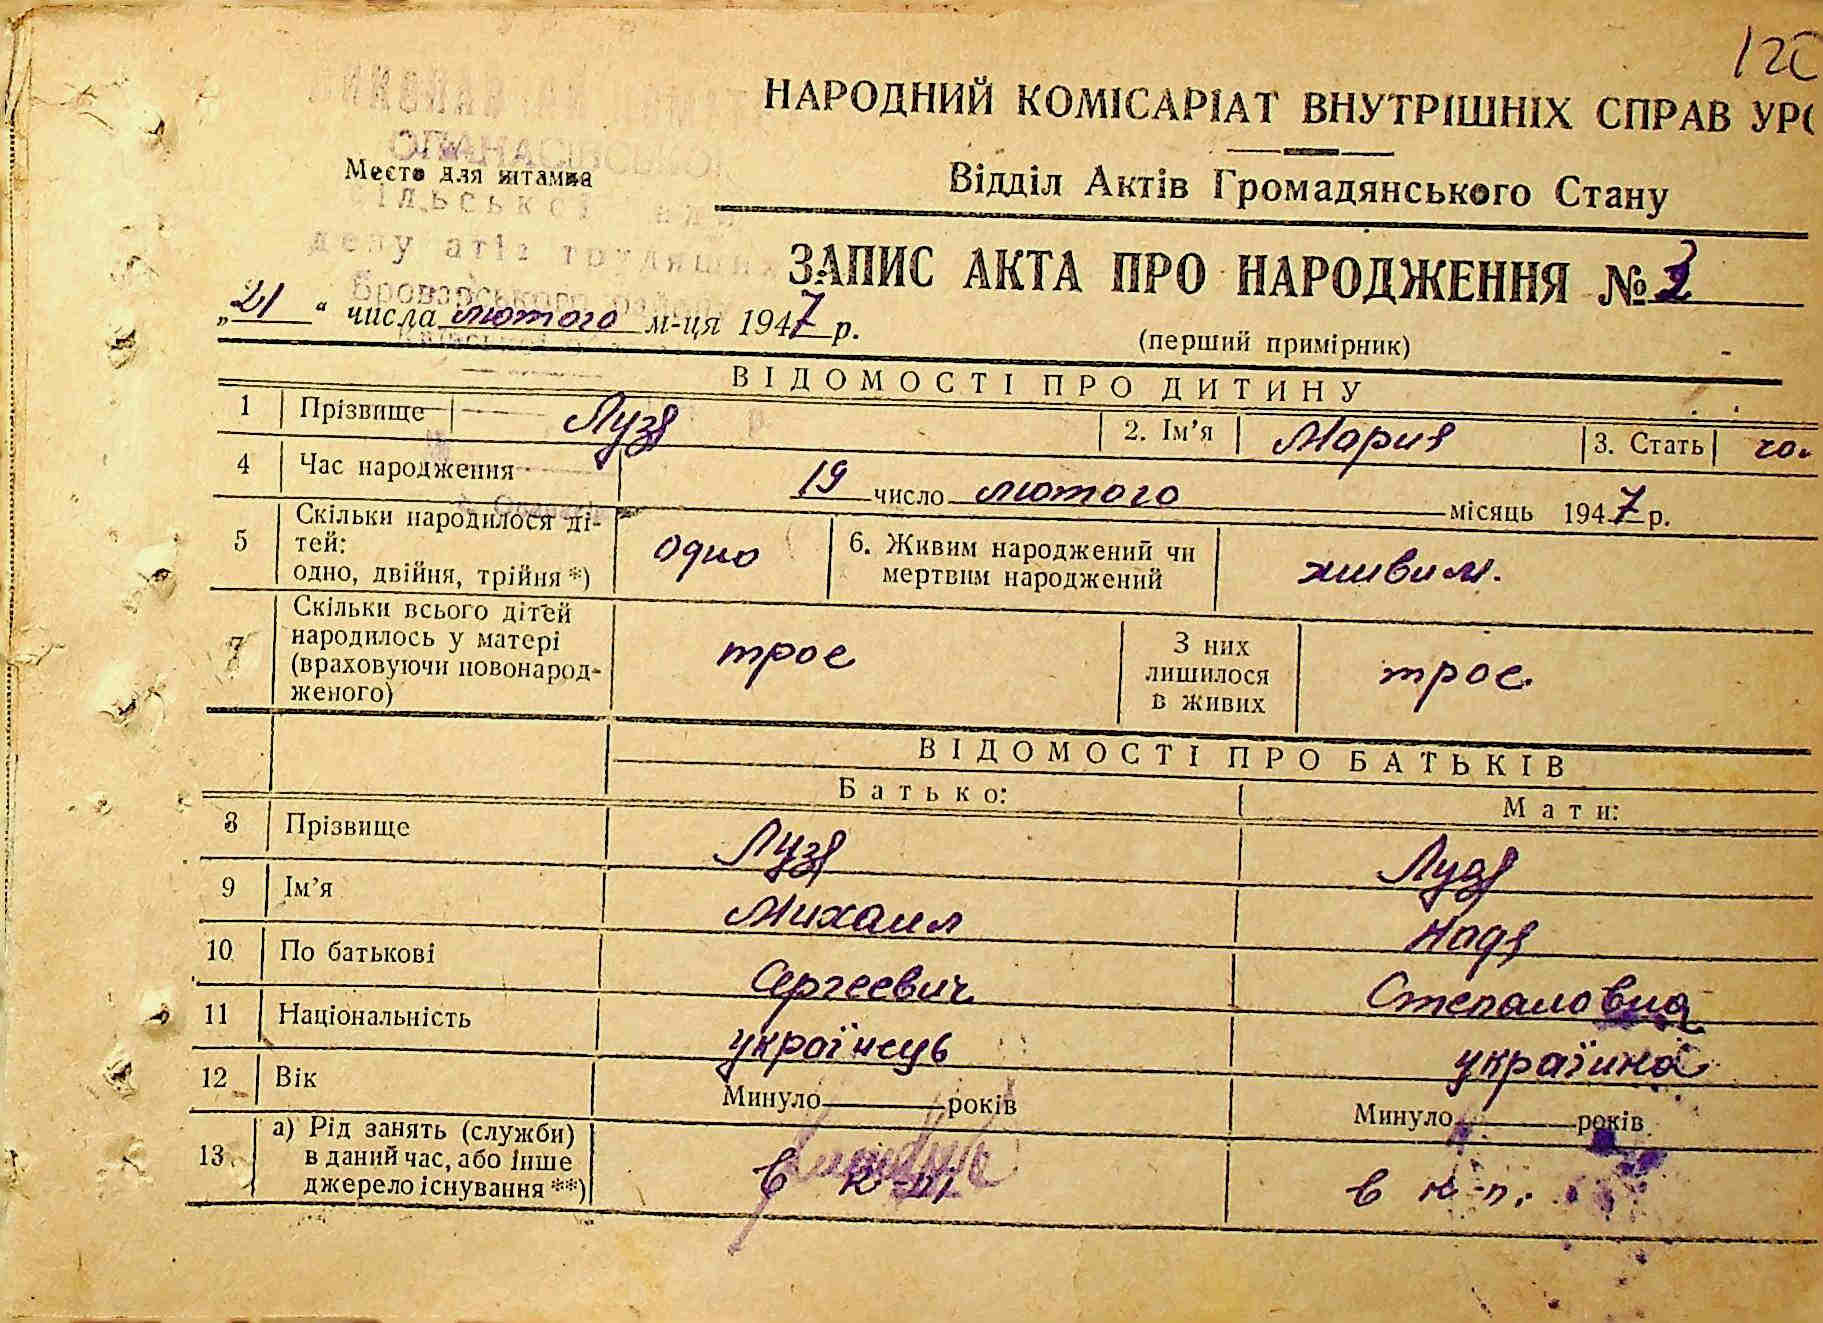 120
НАРОДНИЙ КОМІСАРІАТ ВНУТРІШНІХ СПРАВ УРС
Место для штампа
ОПАНАСІВСЬКОЇ
Відділ Актів Громадянського Стану
ЗАПИС АКТА ПРО НАРОДЖЕННЯ №
Броварського району
„21“ числа лютого м-ця 1947 р.
(перший примірник)
ВІДОМОСТІ ПРО ДИТИНУ
1 Прізвище Лузя 2. Ім’я Мария 3. Стать
4 Час народження 19 число лютого місяць 1947 р.
5 Скільки народилося ді-
тей:
одно, двійня, трійня*) одно 6. Живим народжений чи
мертвим народжений живим.
7 Скільки всього дітей
народилось у матері
(враховуючи новонарод-
женого) троє З них
лишилося
в живих троє
ВІДОМОСТІ ПРО БАТЬКІВ
Батько: Мати:
8 Прізвище Лузя Лузя
9 Ім’я Михаил Надя
10 По батькові Сергеевич Степановна
11 Національність українець україина
12 Вік Минуло років Минуло років
13 а) Рід занять (служби)
в даний час, або інше
джерело існування**) в к-п. в к-п.